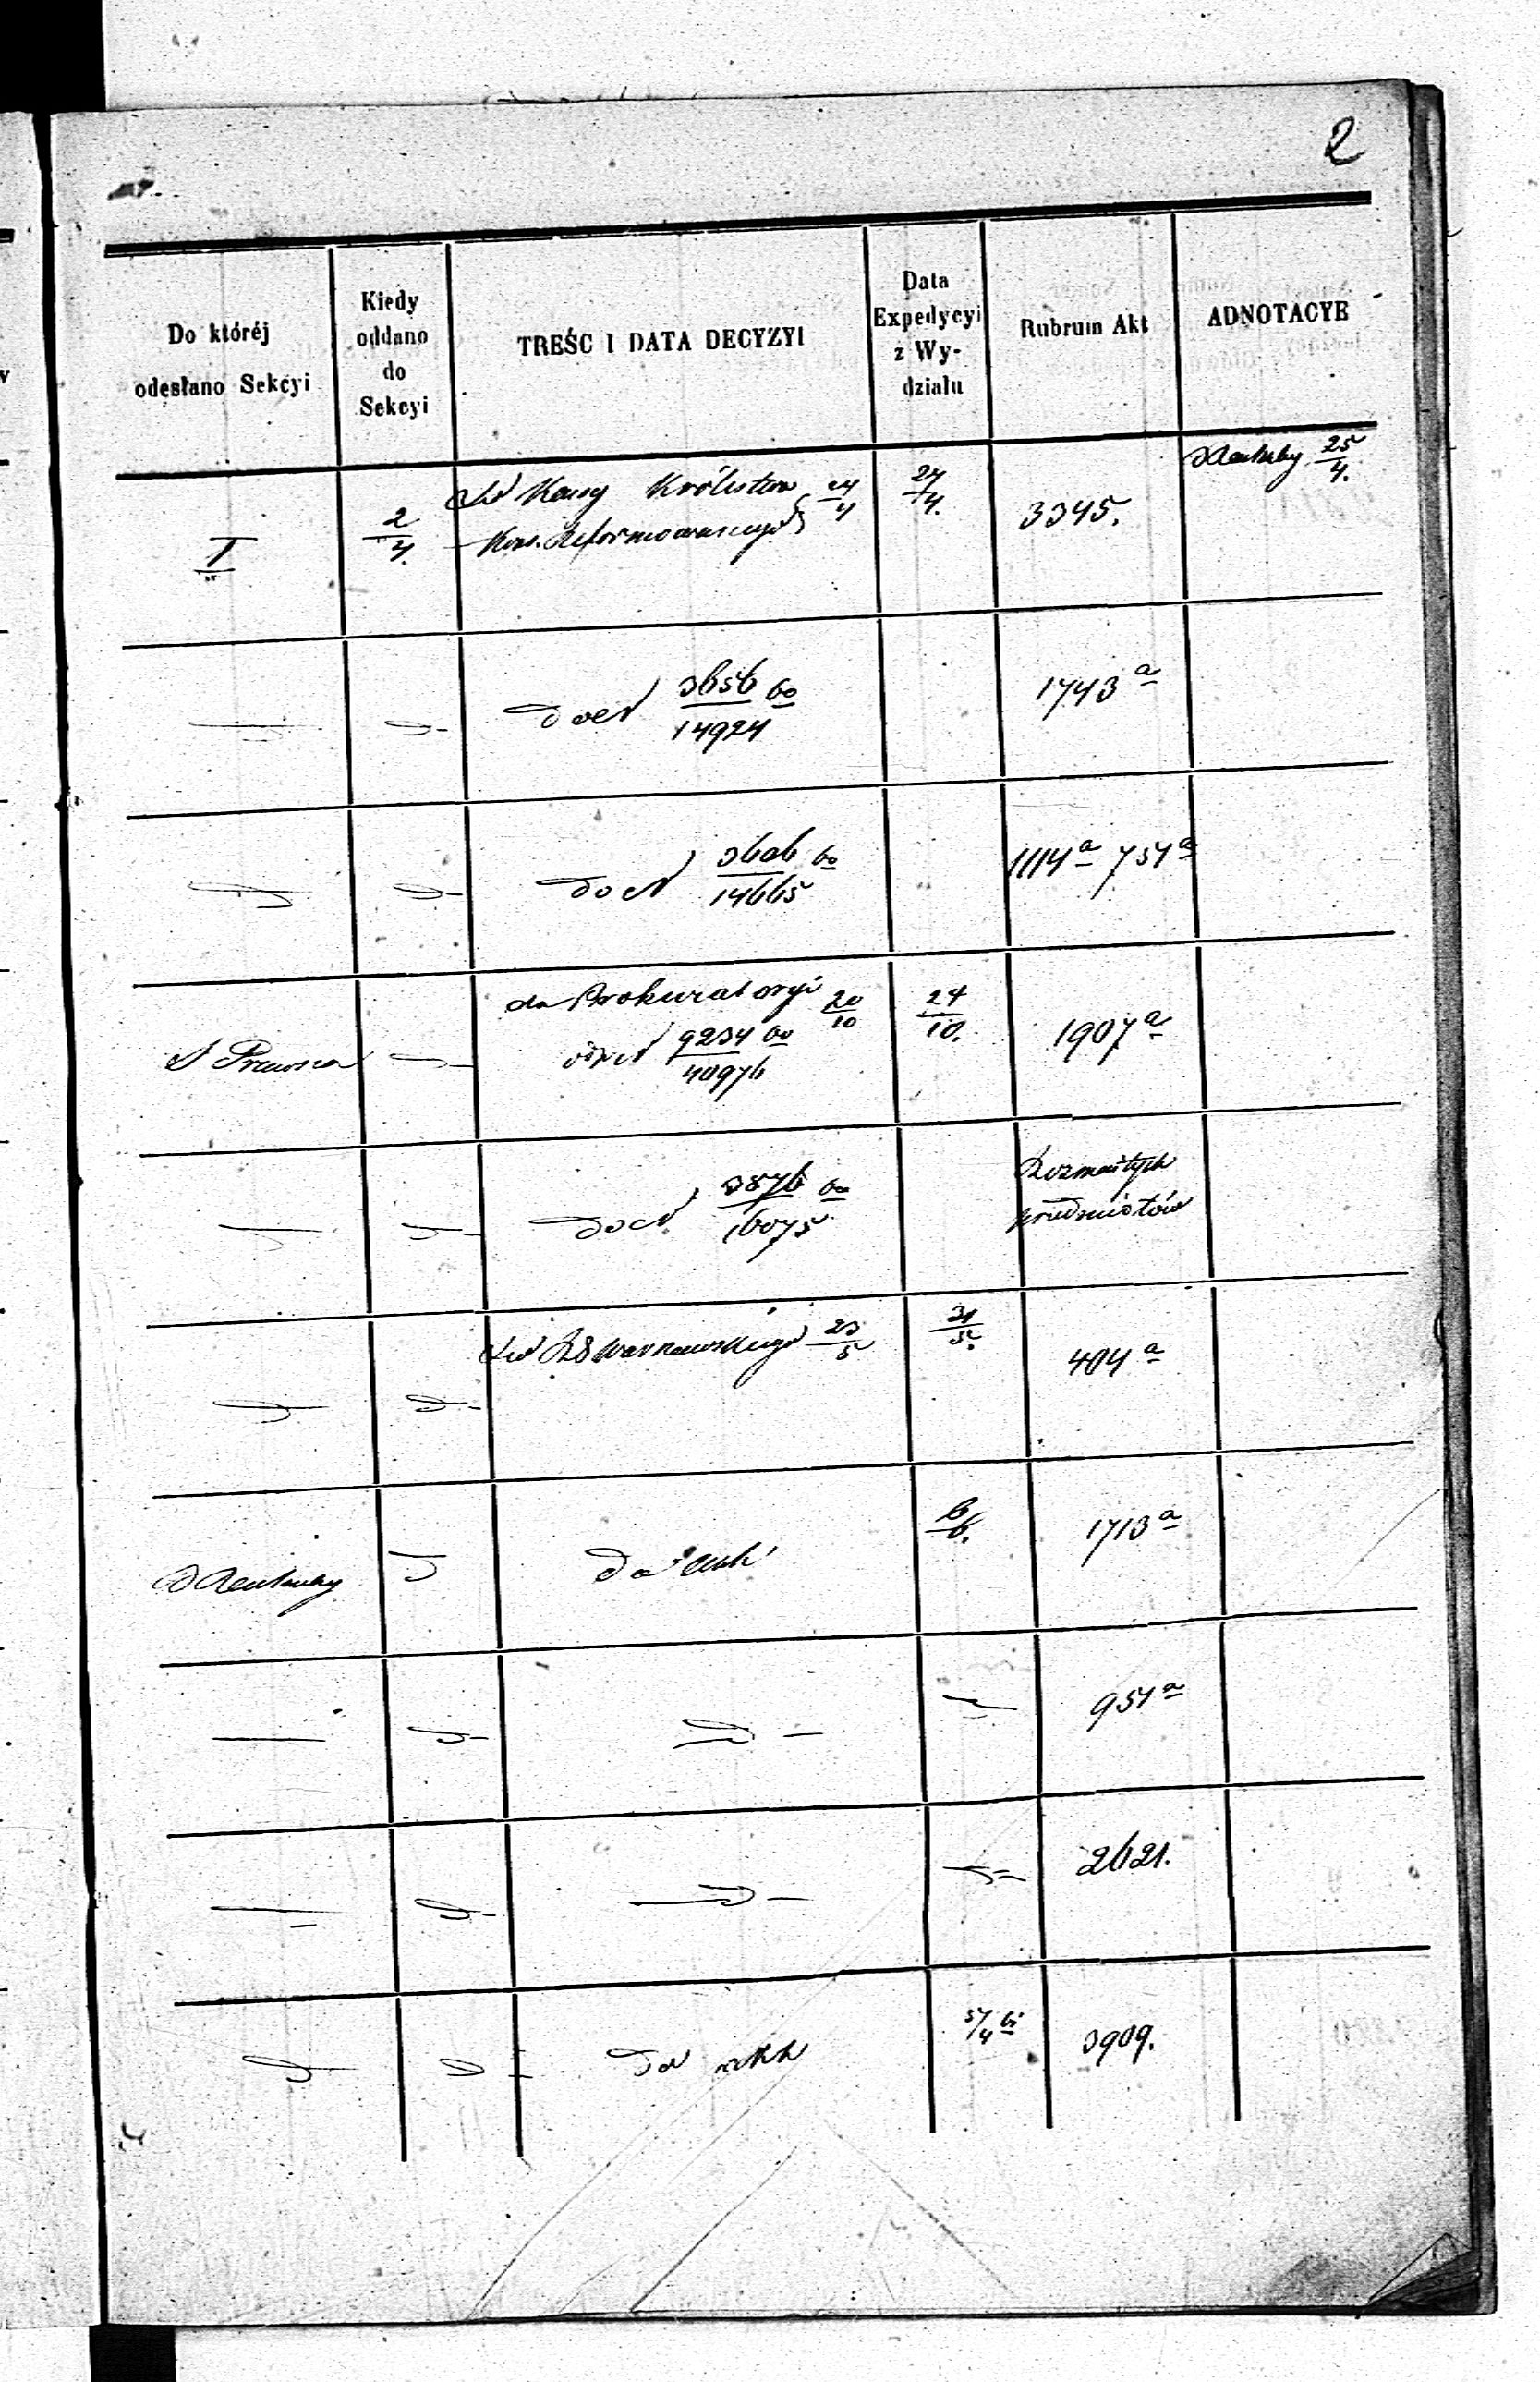 2
Do któréj
odesłano Sekcyi
Kiedy
oddano
do
Sekcyi
TREŚC I DATA DECYZYI
Data
Expedycyi
z Wy-
działu
Rubrum Akt
ADNOTACYE
I
2/4.
Do Kassy Królestwa 24/4
Kons. Reformowanego
27/4.
3345.
25/4.
do N 3656/14924 60
1743 a
do N 3606/14665 60
1114 a 757 a
S Prawna
do Prokuratoryi 20/10
N 9234/40976 60
24/10.
1907 a
do N 3876/16075 60
Rozmaitych
przedmiotów
Do RG Warszawskiego 23/5
31/5.
404 a
do akt
6/6.
1713 a
951 a
2621.
do akt
5/4 61
3909.